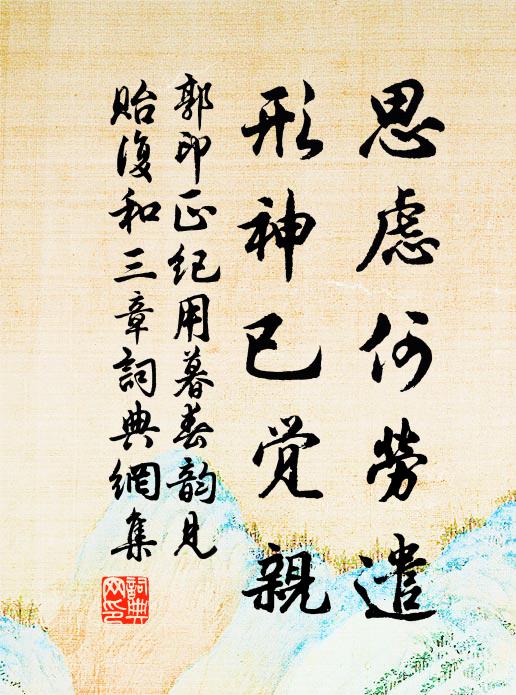 思慮何勞遣
形神已覺親
郭印正紀用暮春韵見
貽復和三章詞典網集
詞典
网